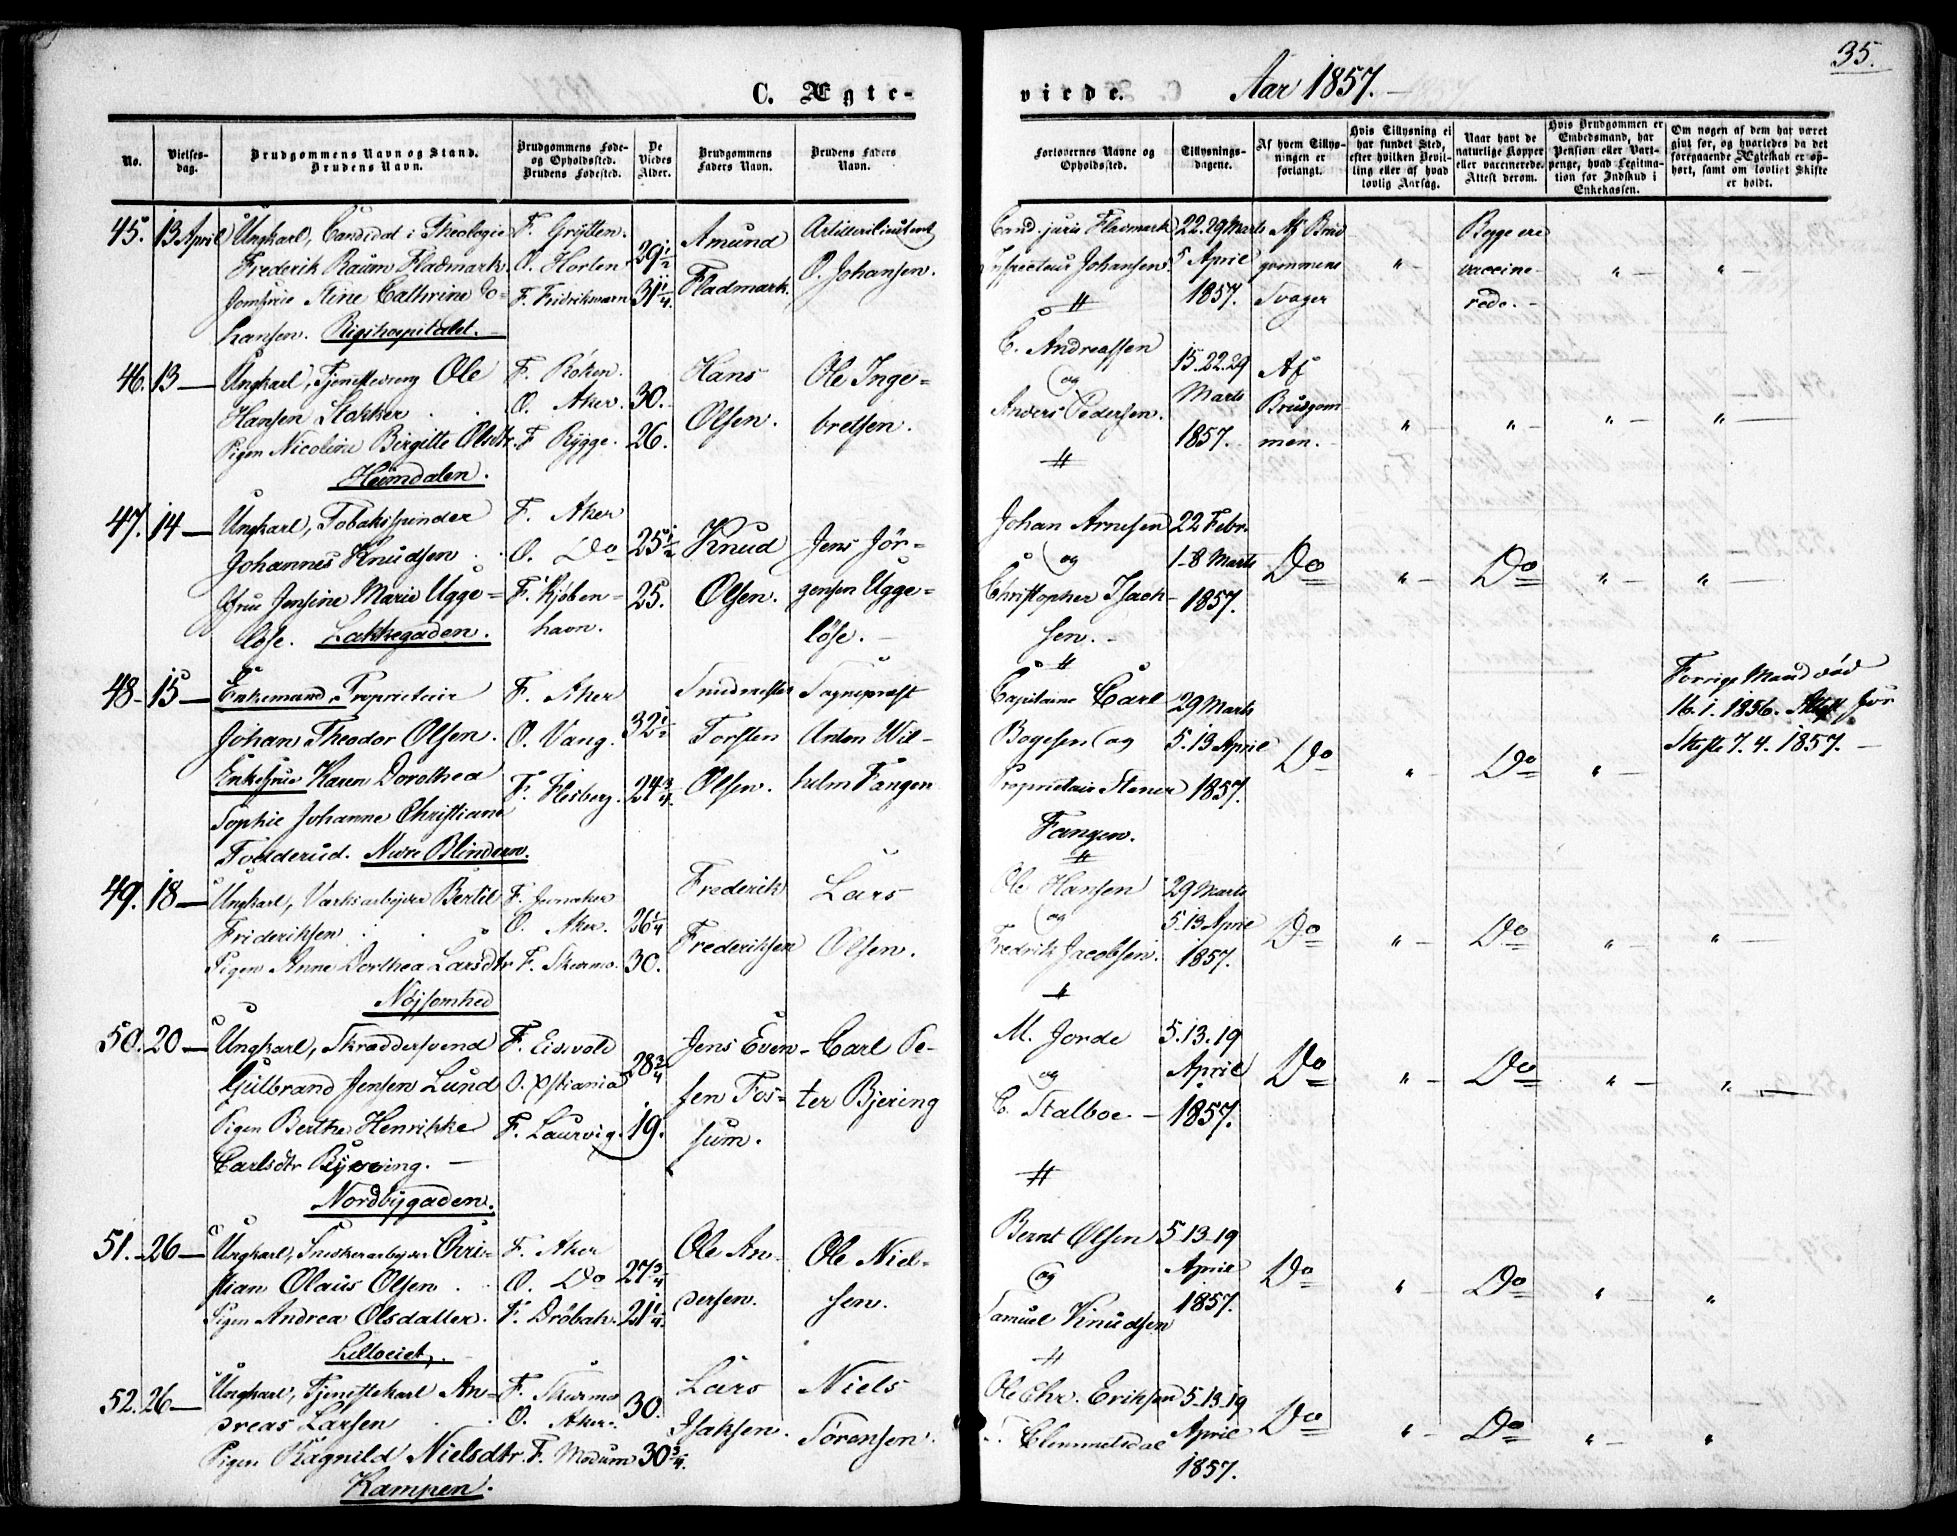 C. Ægte-
No.
Vielses-
dag.
Brudgommens Navn og Stand.
Brudens Navn.
Brudgommens Føde-
og Opholdssted.
Brudens Fødested.
De
Viedes
Alder.
Brudgommens
Faders Navn.
Brudens Faders
Navn.
45. 13 April Ungkarl, Candidat i Theologie
Frederik Raum Fladmark
Jomfrue Stine Cathrine Jo-
hansen. Rigshospitalet.
F. Grytten.
O. Horten
F. Fridrikswærn
29 1/2
31 1/4
Amund
Fladmark.
Artillerilieutenant
O. Johansen.
46. 13 — Ungkarl, Tjenestedreng Ole
Hansen Stokker
Pigen Nicoline Birgitte Olsdtr.
Heimdalen.
F. Røken.
O. Aker.
F. Rygge.
30.
26.
Hans
Olsen.
Ole Inge-
bretsen.
47. 14 — Ungkarl, Tobaksspinder
Johannes Knudsen
Jfrue Jensine Marie Ugge-
løse. Lakkegaden.
F. Aker
O. Do
F. Kjøben-
havn.
25 1/2
25.
Knud
Olsen.
Jens Jør-
gensen Ugge-
løse.
48. 15 — Enkemand Proprietair
Johan Theodor Olsen.
Enkefrue Karen Dorothea
Sophie Johanne Christiane
Fodderud. Nere Blindern.
F. Aker
O. Vang.
F. Flesberg.
32 1/2
24 3/4.
Smedmester
Torsten
Olsen.
Sognepræst
Anton Wil-
helm Fangen
49. 18 — Ungkarl, Værksarbejder Bertil
Frideriksen
Pigen Anne Dorthea Larsdtr
Nøjsomhed
F. Jevnaker
O. Aker.
F. Skurmo.
26 1/4
30.
Frederik
Frederiksen
Lars
Olsen.
50. 20 — Ungkarl, Skræddersvend
Gulbrand Jensen Lund
Pigen Berthe Henrikke
Carlsdtr Bjerring.
Nordbygaden.
F. Eidsvold
O. Xstiania
F. Laurvig.
28 3/4
19.
Jens Even-
sen Fos-
sum.
Carl Pe-
ter Bjering
51. 26 — Ungkarl, Snekkerarbejder Chri-
stian Olaus Olsen
Pigen Andrea Olsdatter.
Lilloeiet.
F. Aker
O. Do
F. Drøbak.
27 3/4
21 1/4.
Ole An-
dersen.
Ole Niel-
sen.
52. 26 — Ungkarl, Tjenestekarl An-
dreas Larsen
Pigen Ragnild Nielsdtr.
Kampen.
F. Skurmo
O. Aker.
F. Modum
30.
30 3/4.
Lars
Isaksen.
Niels
Sørensen.
35.
viede. Aar 1857.
Forlovernes Navne og
Opholdssted.
Tillysnings-
dagene.
Af hvem Tillys-
ningen er
forlangt.
Hvis Tillysning ei
har fundet Sted,
efter hvilken Bevil-
ling eller af hvad
lovlig Aarsag.
Naar havt de
naturlige Kopper
eller vaccinerede.
Attest derom.
Hvis Brudgommen er
Embedsmand, har
Pension eller Vart-
penge, hvad Legitima-
tion for Indskud i
Enkekassen.
Om nogen af dem har været
gift før, og hvorledes da det
foregaaende Ægteskab er op-
hørt, samt om lovligt Skifte
er holdt.
Cand. juris Fladmark
Johansen.
22. 29 Marts
5 April
1857.
Af Brud
gommens
Svager
Begge ere
vaccine-
rede.
C. Andreassen
og
Anders Pedersen.
15. 22. 29
Marts
1857.
Af
Brudgom
men.
Johan Arnesen
og
Christopher Isach-
sen.
22 Febr.
1-8 Marts
1857.
Do
Do
Capitaine Carl
Bogesen og
Proprietair Stener
Fangen.
29 Marts
5. 13 April
1857.
Do
Do
Forrige Mand død
16. 1. 1856. Attest for
Skifte 7. 4. 1857.
Ole Hansen
og
Fredrik Jacobsen.
29 Marts
5. 13 April
1857.
Do
Do
M. Jorde
og
C. Stalboe.
5. 13. 19
April
1857.
Do
Do
Bernt Olsen
og
Samuel Knudsen
5-13-19
April
1857.
Do
Do
Ole Chr. Eriksen
Clemmetsdal
5-13-19
April
1857.
Do
Do